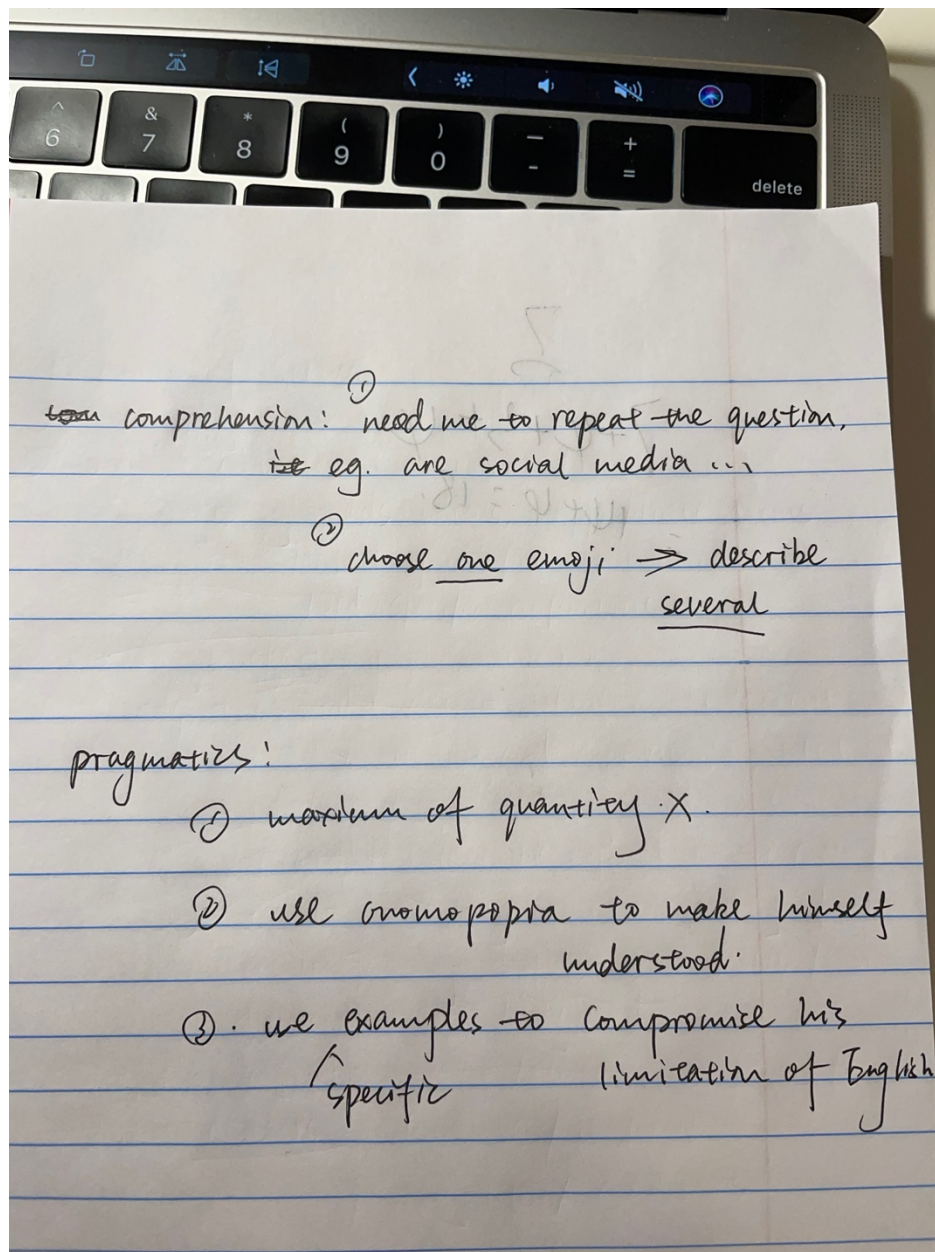 ^ & * ( ) — +
6 7 8 9 0 - =
delete
①
comprehension: need me to repeat the question,
eg. are social media ...
②
choose one emoji → describe
several
pragmatics:
① maxium of quantity X.
② use onomopopia to make himself
understood.
③. use examples to compromise his
specific limitation of English